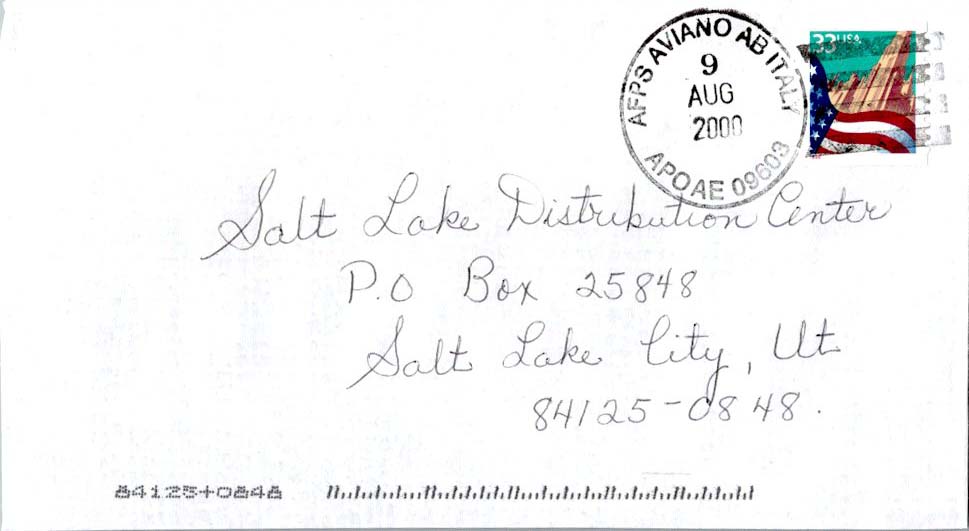 AFPS AVIANO AB ITALY
9
AUG
2000
APOAE 09603
33USA
Salt Lake Distribution Center
P.O Box 25848
Salt Lake City, Ut
84125-0848.
84125+0848